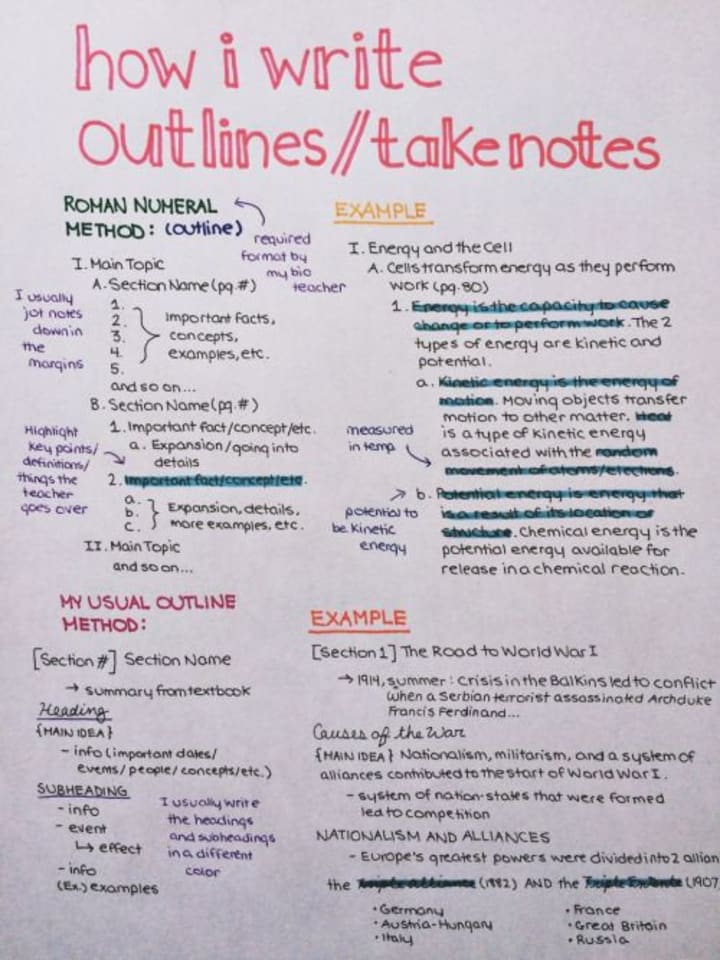 how i write
outlines//take notes
ROMAN NUMERAL
METHOD: (outline)
required
format by
my bio
teacher
I. Main Topic
A. Section Name (pg.#)
1.
2.
3.
4.
5.
Important facts,
concepts,
examples, etc.
and so on...
I usually
jot notes
down in
the
margins
B. Section Name (pg.#)
1. Important fact/concept/etc.
a. Expansion/going into
details
2. Important fact/concept/etc.
a.
b.
c.
Expansion, details,
more examples, etc.
Highlight
key points/
definitions/
things the
teacher
goes over
II. Main Topic
and so on...
EXAMPLE
I. Energy and the Cell
A. Cells transform energy as they perform
work (pg. 80)
1. Energy is the capacity to cause
change or to perform work. The 2
types of energy are kinetic and
potential.
a. Kinetic energy is the energy of
motion. Moving objects transfer
motion to other matter. Heat
is a type of kinetic energy
associated with the random
movement of atoms/electrons.
measured
in temp
b. Potential energy is energy that
is a result of its location or
structure. Chemical energy is the
potential energy available for
release in a chemical reaction.
potential to
be kinetic
energy
MY USUAL OUTLINE
METHOD:
[Section #] Section Name
→ summary from textbook
Heading
{MAIN IDEA}
- info (important dates/
events/people/concepts/etc.)
SUBHEADING
- info
- event
↳ effect
- info
(Ex.) examples
I usually write
the headings
and subheadings
in a different
color
EXAMPLE
[Section 1] The Road to World War I
→ 1914, summer: crisis in the Balkins led to conflict
when a Serbian terrorist assassinated Archduke
Francis Ferdinand...
Causes of the War
{MAIN IDEA} Nationalism, militarism, and a system of
alliances contributed to the start of World War I.
- system of nation-states that were formed
led to competition
NATIONALISM AND ALLIANCES
- Europe's greatest powers were divided into 2 allian
the Triple Alliance (1882) AND the Triple Entente (1907
• Germany
• Austria-Hungary
• Italy
• France
• Great Britain
• Russia